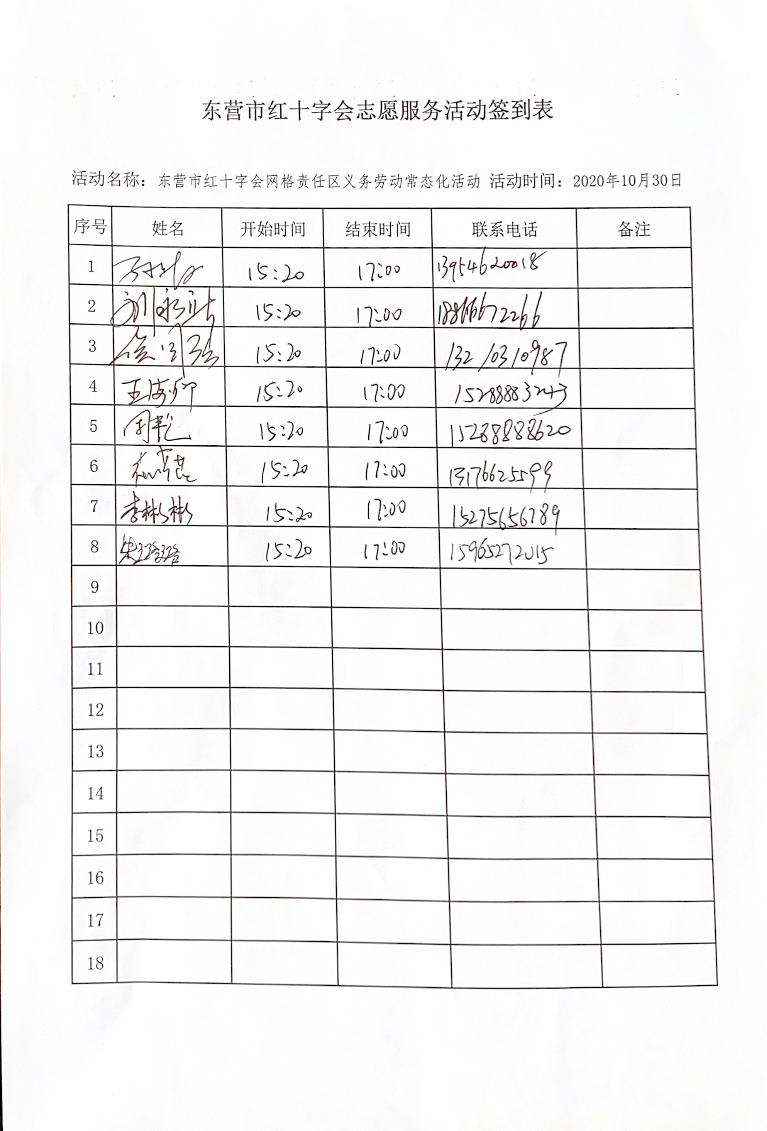 东营市红十字会志愿服务活动签到表
活动名称：东营市红十字会网格责任区义务劳动常态化活动 活动时间：2020年10月30日
序号 姓名 开始时间 结束时间 联系电话 备注
1 15:20 17:00 13954620018
2 15:20 17:00 18866672266
3 15:20 17:00 13210310987
4 15:20 17:00 15288883243
5 周艳 15:20 17:00 15288888620
6 15:20 17:00 13176625599
7 李彬彬 15:20 17:00 15275656789
8 15:20 17:00 15965272015
9
10
11
12
13
14
15
16
17
18